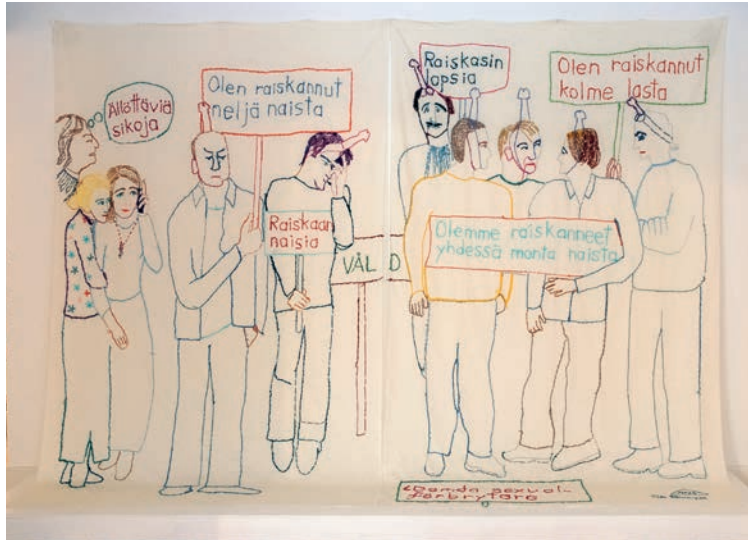 Ällöttäviä
sikoja
Olen raiskannut
neljä naista
Raiskaan
naisia
VÅL D
Raiskasin
lapsia
Olen raiskannut
kolme lasta
Olemme raiskanneet
yhdessä monta naista
Dömda sexual-
förbrytare